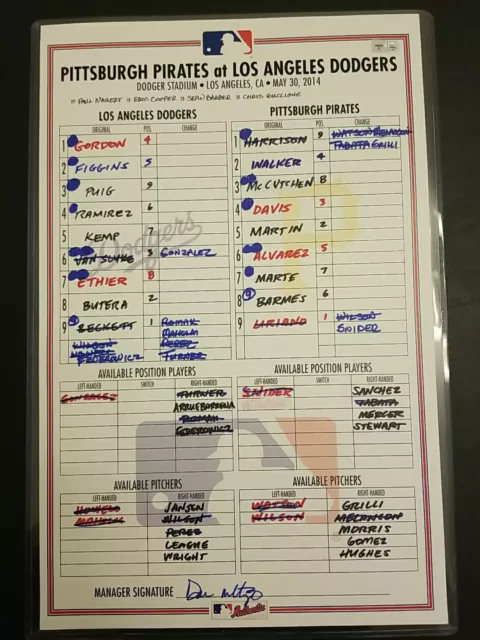 PITTSBURGH PIRATES at LOS ANGELES DODGERS
DODGER STADIUM • LOS ANGELES, CA • MAY 30, 2014
PAUL NAUERT ERIC COOPER SEAN BARBER CHRIS GUCCIONE
LOS ANGELES DODGERS
ORIGINAL POS. CHANGE
1 GORDON 4
2 FIGGINS 5
3 PUIG 9
4 RAMIREZ 6
5 KEMP 7
6 VAN SLYKE 3 GONZALEZ
7 ETHIER 8
8 BUTERA 2
9 BECKETT 1 ROMAK
MAHOLM
WILSON PEREZ
HOWELL
FEDEROWICZ TURNER
PITTSBURGH PIRATES
ORIGINAL POS. CHANGE
1 HARRISON 9 WATSON MELANCON
TABATA GRILLI
2 WALKER 4
3 McCUTCHEN 8
4 DAVIS 3
5 MARTIN 2
6 ALVAREZ 5
7 MARTE 7
8 BARMES 6
9 LIRIANO 1 WILSON
SNIDER
AVAILABLE POSITION PLAYERS
LEFT-HANDED SWITCH RIGHT-HANDED
GONZALEZ TURNER
ARRUEBARRENA
ROMAK
FEDEROWICZ
AVAILABLE POSITION PLAYERS
LEFT-HANDED SWITCH RIGHT-HANDED
SNIDER SANCHEZ
TABATA
MERCER
STEWART
AVAILABLE PITCHERS
LEFT-HANDED RIGHT-HANDED
HOWELL JANSEN
MAHOLM WILSON
PEREZ
LEAGUE
WRIGHT
AVAILABLE PITCHERS
LEFT-HANDED RIGHT-HANDED
WATSON GRILLI
WILSON MELANCON
MORRIS
GOMEZ
HUGHES
MANAGER SIGNATURE
Authentic